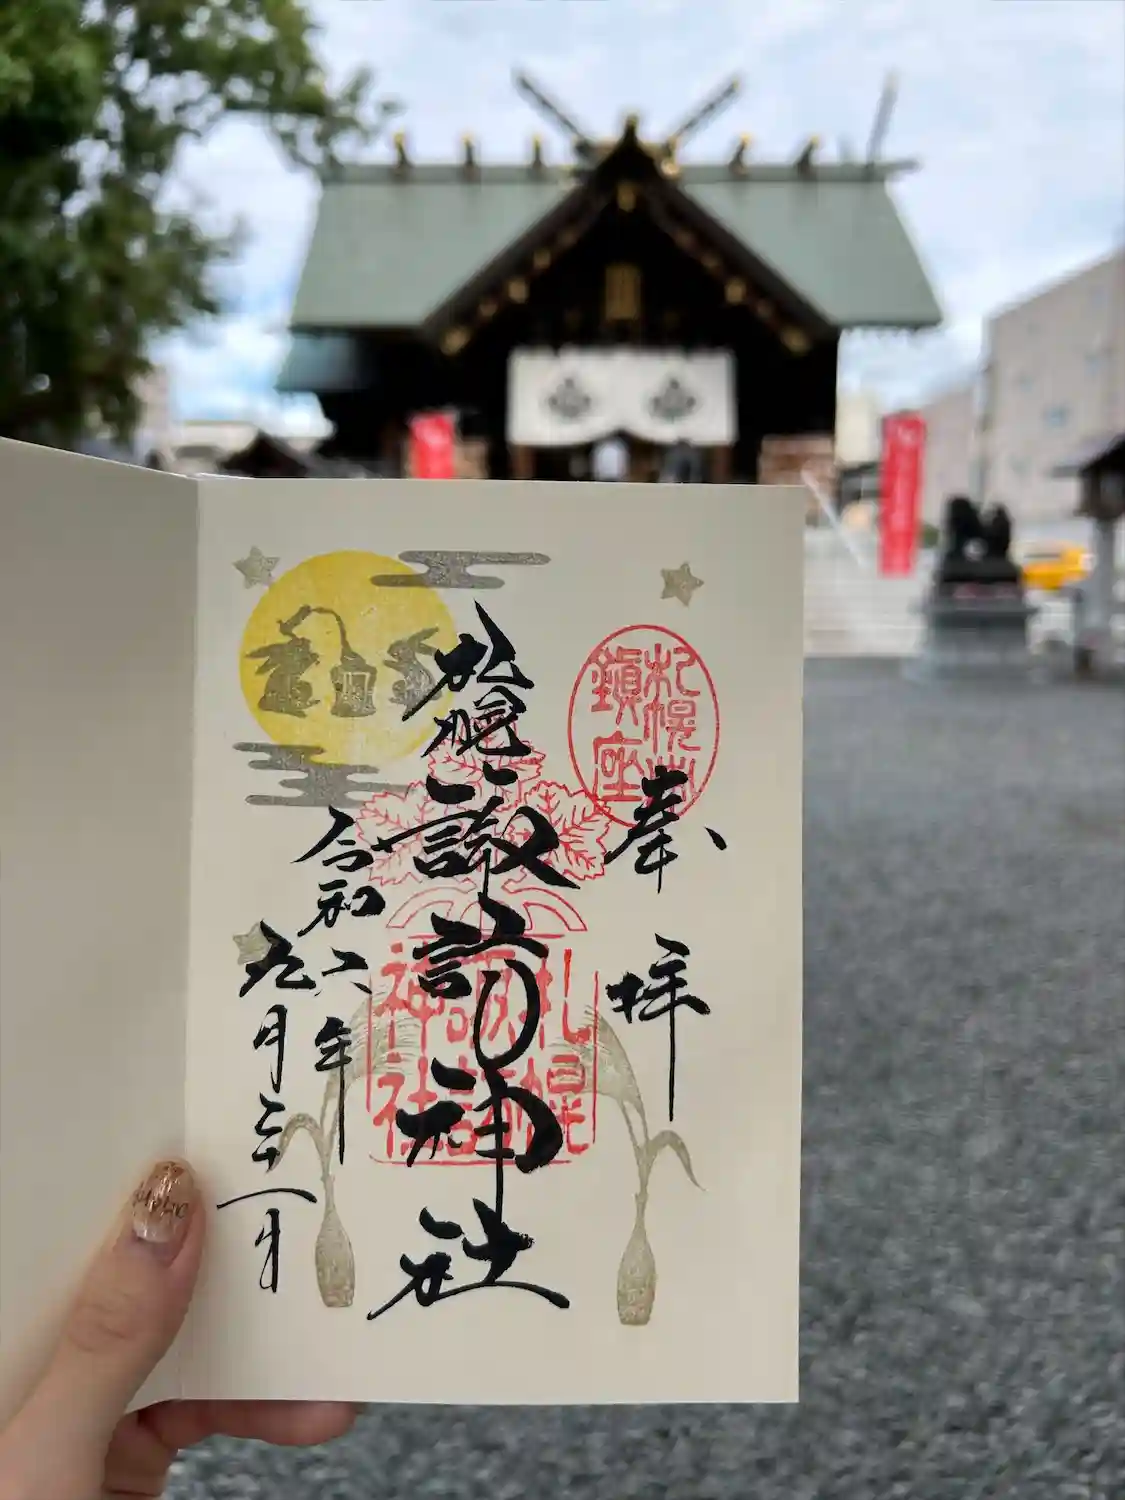 奉拝
札幌
鎮座
札幌諏訪神社
札幌
諏訪
神社
令和六年
九月二十一日